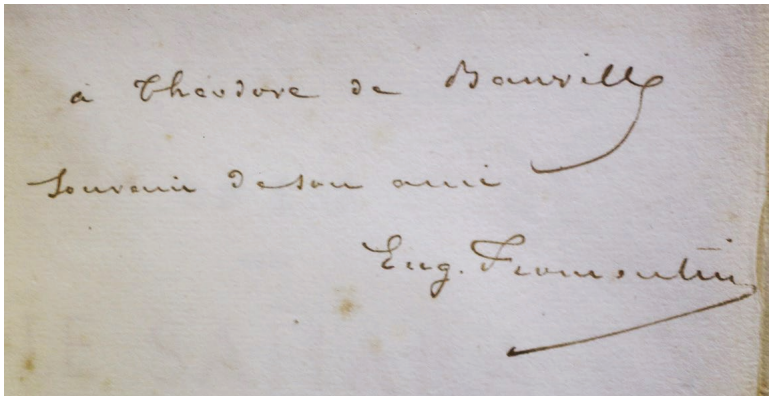 à Théodore de Banville
souvenir de son ami
Eug. Fromentin